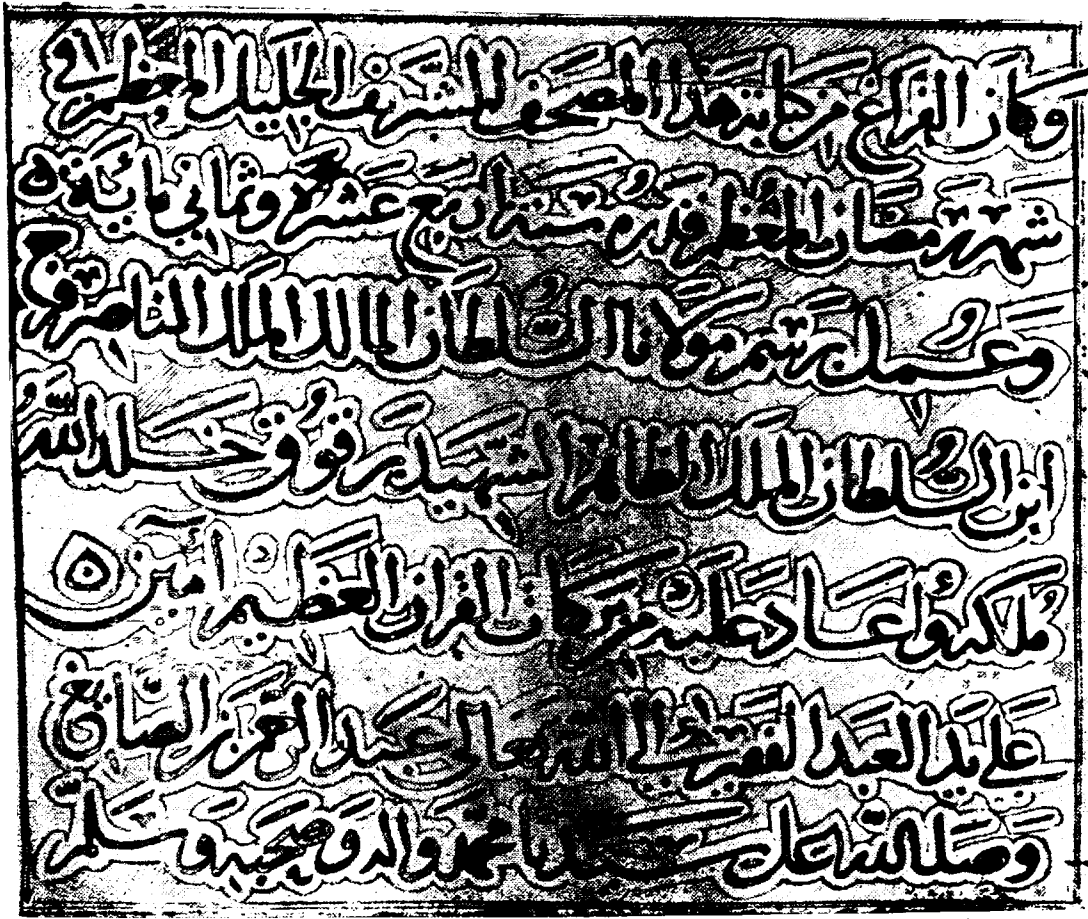 وكان الفراغ من كتابة هذا المصحف الشريف الجليل المعظم في
شهر رمضان المعظم قدره سنة اربع عشره وثماني مائة
وعمل برسم مولانا السلطان المالك الملك الناصر فرج
ابن السلطان الملك الظاهر الشهيد برقوق خلد الله
ملكه وأعاد عليه من بركات القران العظيم امين
على يد العبد الفقير إلى الله تعالى عبد العزيز الصايغ
وصلى الله على سيدنا محمد واله وصحبه وسلم